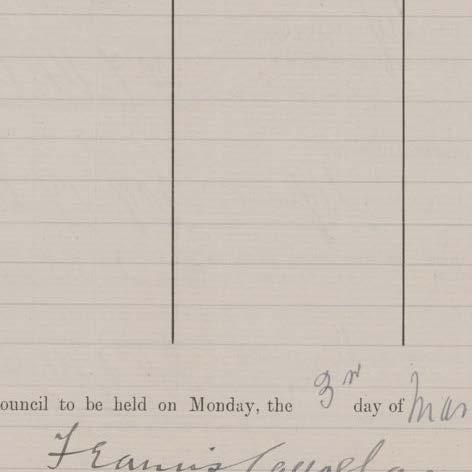 ouncil to be held on Monday, the 3rd day of Mar
Francis